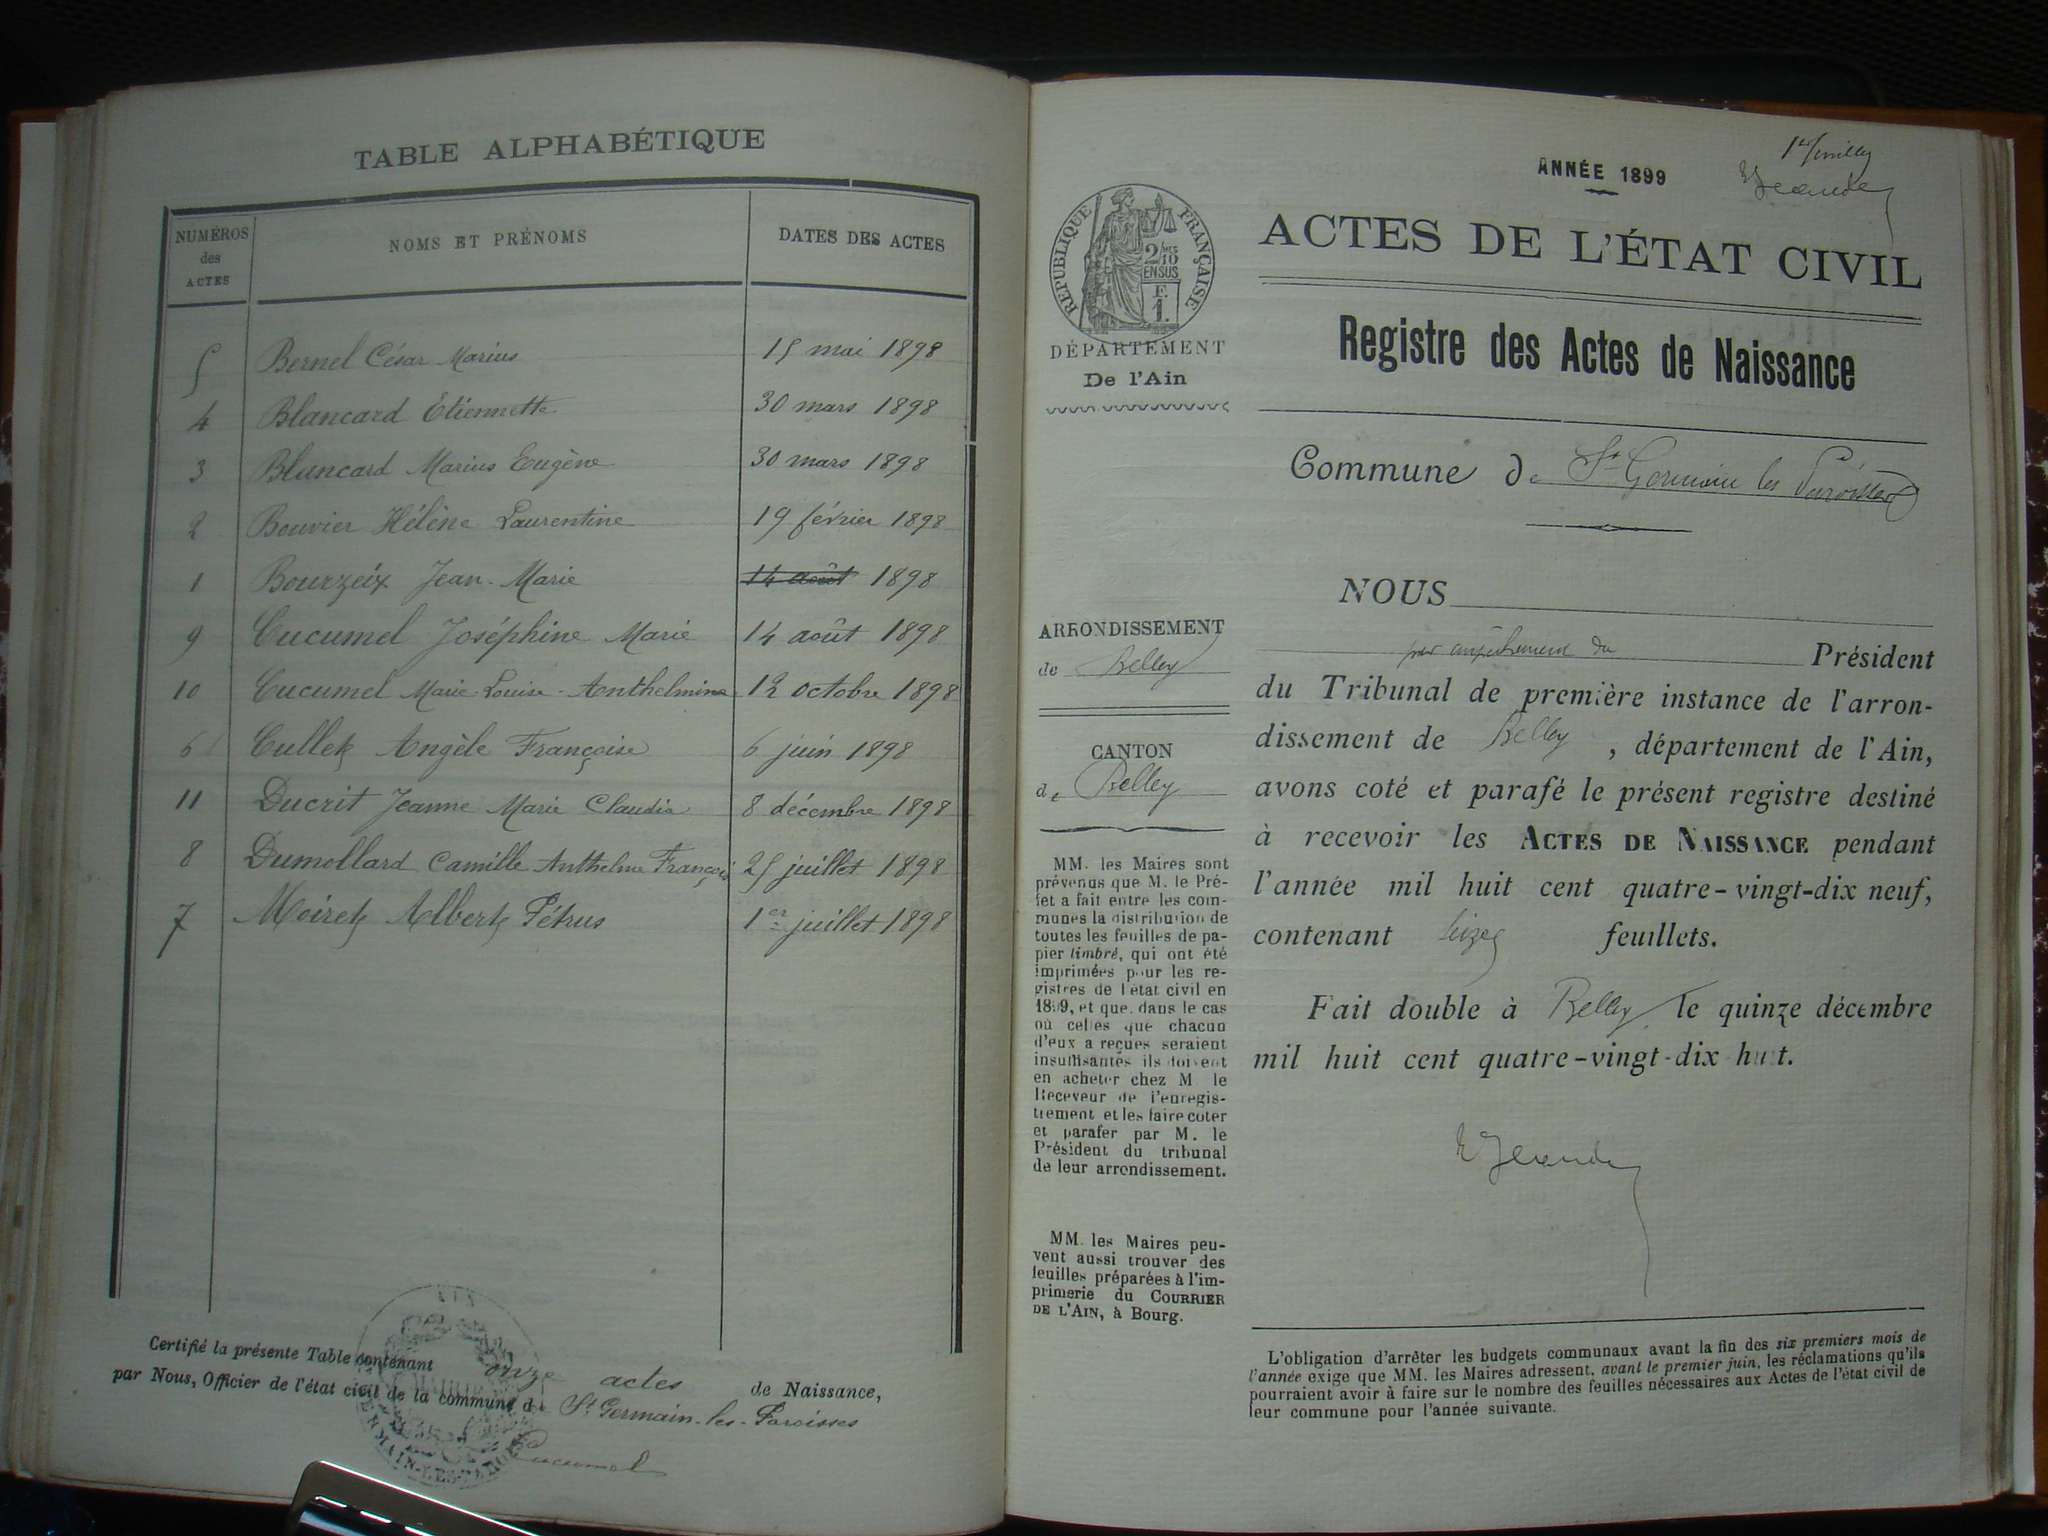 TABLE ALPHABÉTIQUE
NUMÉROS des ACTES
NOMS ET PRÉNOMS
DATES DES ACTES
5 Bernel César Marius 15 mai 1898
4 Blancard Etiennette 30 mars 1898
3 Blancard Marius Eugène 30 mars 1898
2 Bouvier Hélène Laurentine 19 février 1898
1 Bourzeix Jean-Marie 14 août 1898
9 Cucumel Joséphine Marie 14 août 1898
10 Cucumel Marie-Louise-Anthelmine 12 octobre 1898
6 Cullet Angèle Françoise 6 juin 1898
11 Ducrit Jeanne Marie Claudia 8 décembre 1898
8 Dumollard Camille Anthelme François 25 juillet 1898
7 Moiret Albert Pétrus 1er juillet 1898
Certifié la présente Table contenant onze actes de Naissance,
par Nous, Officier de l'état civil de la commune de St Germain-les-Paroisses
Cucumel
AIN
ANNÉE 1899
RÉPUBLIQUE FRANÇAISE
2/10 MES
EN SUS
F.
1.
ACTES DE L'ÉTAT CIVIL
DÉPARTEMENT
De l'Ain
Registre des Actes de Naissance
Commune de St Germain les Paroisses
ARRONDISSEMENT
de Belley
CANTON
de Belley
MM. les Maires sont
prévenus que M. le Pré-
fet a fait entre les com-
munes la distribution de
toutes les feuilles de pa-
pier timbré, qui ont été
imprimées pour les re-
gistres de l'état civil en
1899, et que, dans le cas
où celles que chacun
d'eux a reçues seraient
insuffisantes ils doivent
en acheter chez M le
Receveur de l'enregis-
trement et les faire coter
et parafer par M. le
Président du tribunal
de leur arrondissement.
MM. les Maires peu-
vent aussi trouver des
feuilles préparées à l'im-
primerie du COURRIER
DE L'AIN, à Bourg.
NOUS
par empêchement du Président
du Tribunal de première instance de l'arron-
dissement de Belley, département de l'Ain,
avons coté et parafé le présent registre destiné
à recevoir les ACTES DE NAISSANCE pendant
l'année mil huit cent quatre-vingt-dix neuf,
contenant feuillets.
Fait double à Belley le quinze décembre
mil huit cent quatre-vingt-dix huit.
L'obligation d'arrêter les budgets communaux avant la fin des six premiers mois de
l'année exige que MM. les Maires adressent, avant le premier juin, les réclamations qu'ils
pourraient avoir à faire sur le nombre des feuilles nécessaires aux Actes de l'état civil de
leur commune pour l'année suivante.